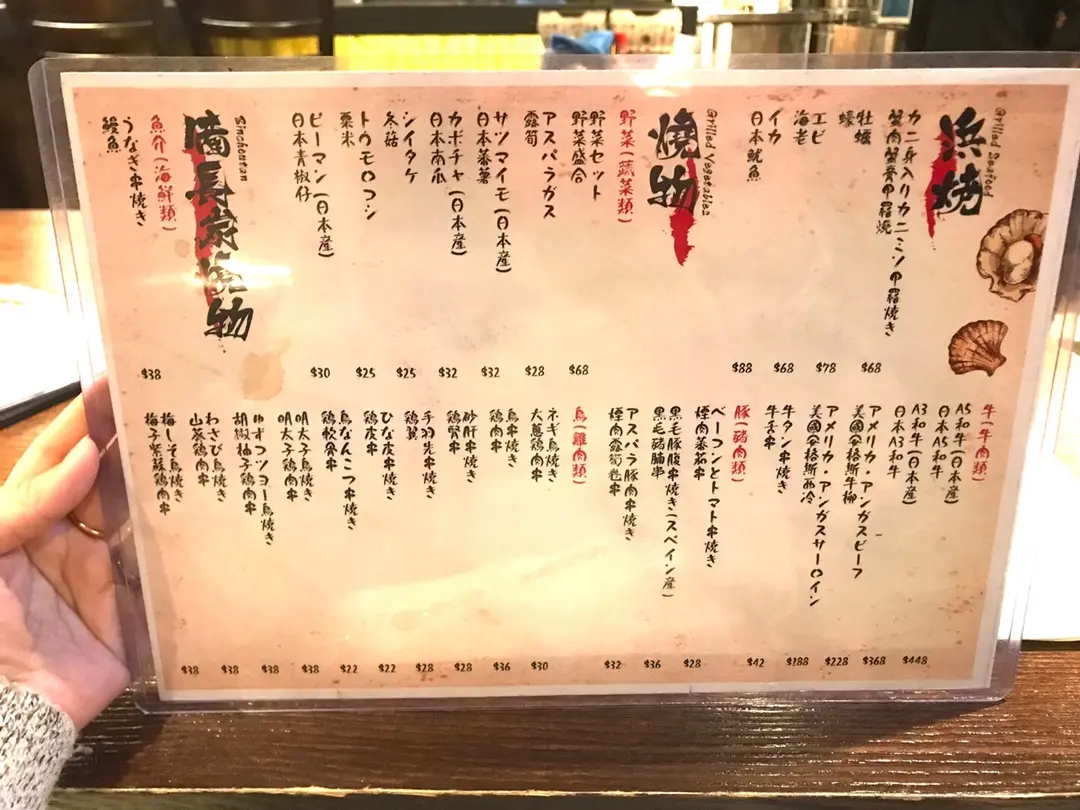 浜焼
Grilled Seafood
カニ身入りカニミソ甲羅焼き
蟹肉蟹膏甲羅燒
$68
牡蠣
蠔
$78
エビ
海老
$68
イカ
日本魷魚
$88
焼物
Grilled Vegetables
野菜(蔬菜類)
野菜セット
野菜盛合
$68
アスパラガス
露筍
$28
サツマイモ(日本産)
日本蕃薯
$32
カボチャ(日本産)
日本南瓜
$32
シイタケ
冬菇
$25
トウモロコシ
粟米
$25
ピーマン(日本産)
日本青椒仔
$30
備長炭焼物
Binchontan
魚介(海鮮類)
うなぎ串焼き
鰻魚
$38
牛(牛肉類)
A5和牛(日本産)
日本A5和牛
$448
A3和牛(日本産)
日本A3和牛
$368
アメリカ・アンガスビーフ
美國安格斯牛柳
$228
アメリカ・アンガスサーロイン
美國安格斯西冷
$188
牛タン串焼き
牛舌串
$42
豚(豬肉類)
ベーコンとトマト串焼き
煙肉蕃茄串
$28
黒毛豚腹串焼き(スペイン産)
黒毛豬腩串
$36
アスパラ豚肉串焼き
煙肉露筍卷串
$32
鳥(雞肉類)
ネギ鳥焼き
大蔥鶏肉串
$30
鳥串焼き
鶏肉串
$36
砂肝串焼き
鶏腎串
$28
手羽先串焼き
鶏翼
$28
ひな皮串焼き
鶏皮串
$22
鳥なんこつ串焼き
鶏軟骨串
$22
明太子鳥焼き
明太子鶏肉串
$38
ゆずコショー鳥焼き
胡椒柚子鶏肉串
$38
わさび鳥焼き
山葵鶏肉串
$38
梅しそ鳥焼き
梅子紫蘇鶏肉串
$38